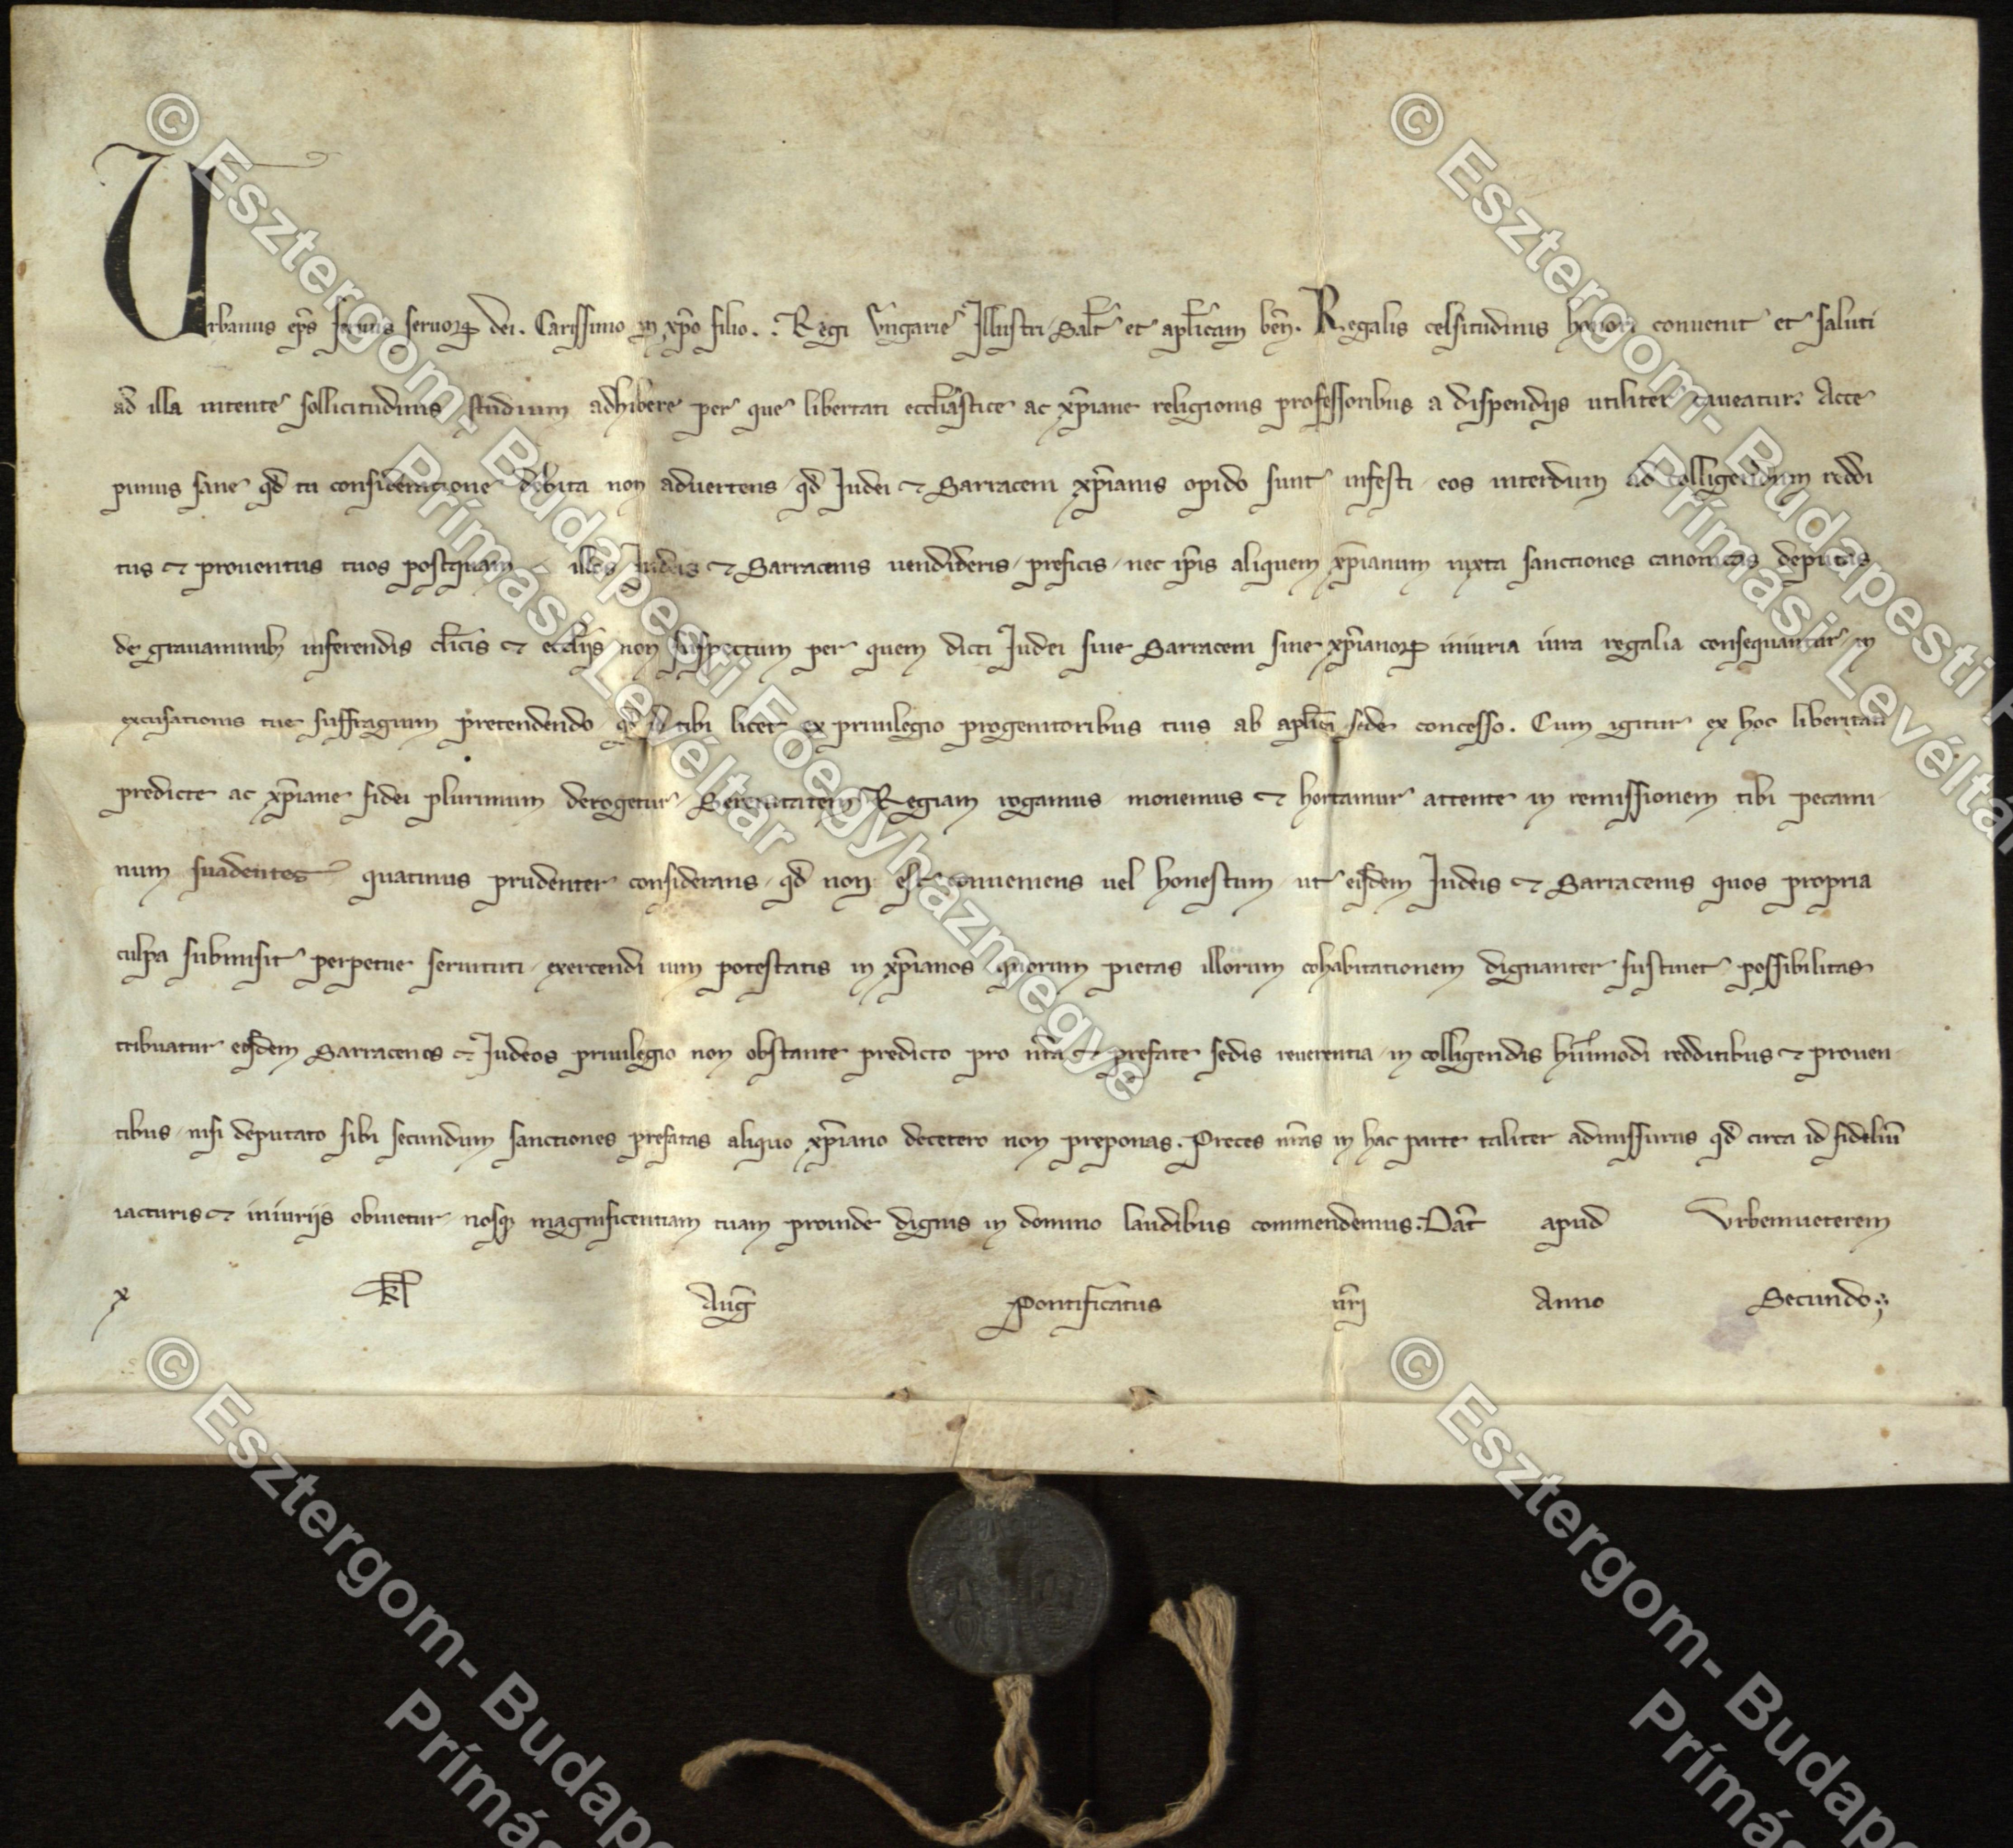 Urbanus ep̄s seruus seruoꝝ dei. Carissimo in xp̄o filio .. Regi Vngarie Illustri Saƚt et apƚicam beñ. Regalis celsitudinis honori conuenit et saluti
ad illa intente sollicitudinis studium adhibere per que libertati eccƚiastice ac xp̄iane religionis professoribus a dispendijs utiliter caueatur. Acce
pimus sane qd̄ tu consideratione debita non aduertens qd̄ Iudei ⁊ Sarraceni xp̄ianis opido sunt infesti eos interdum ad colligendum reddi
tus ⁊ prouentus tuos postquam illos Iudeis ⁊ Sarracenis uendideris preficis nec ip̄is aliquem xp̄ianum iuxta sanctiones canonicas deputas
de grauaminib; inferendis cƚicis ⁊ eccƚijs non suspectum per quem dicti Iudei siue Sarraceni sine xp̄ianoꝝ iniuria iura regalia consequantur in
excusationis tue suffragium pretendendo qd̄ id tibi licet ex priuilegio progenitoribus tuis ab apƚica sede concesso. Cum igitur ex hoc libertati
predicte ac xp̄iane fidei plurimum derogetur Serenitatem Regiam rogamus monemus ⁊ hortamur attente in remissionem tibi peccami
num suadentes quatinus prudenter considerans qd̄ non est conueniens uel honestum ut eisdem Iudeis ⁊ Sarracenis quos propria
culpa submisit perpetue seruituti exercendi uim potestatis in xp̄ianos quorum pietas illorum cohabitationem dignanter sustinet possibilitas
tribuatur eosdem Sarracenos ⁊ Iudeos priuilegio non obstante predicto pro nr̄a ⁊ prefate sedis reuerentia in colligendis huiusmodi redditibus ⁊ prouen
tibus nisi deputato sibi secundum sanctiones prefatas aliquo xp̄iano decetero non preponas. Preces nr̄as in hac parte taliter admissurus qd̄ circa id fideliū
iacturis ⁊ iniurijs obuietur nosqꝫ magnificentiam tuam proinde dignis in domino laudibus commendemus. Dat̄ apud Vrbemueterem
x kƚ Auḡ Pontificatus nr̄i Anno Secundo.
© Esztergom-Budapesti Főegyházmegye
Prímási Levéltár
© Esztergom-Budapesti
Prímási Levéltár
© Esztergom-Budape
Prímás
© Esztergom-Budapes
Prímás